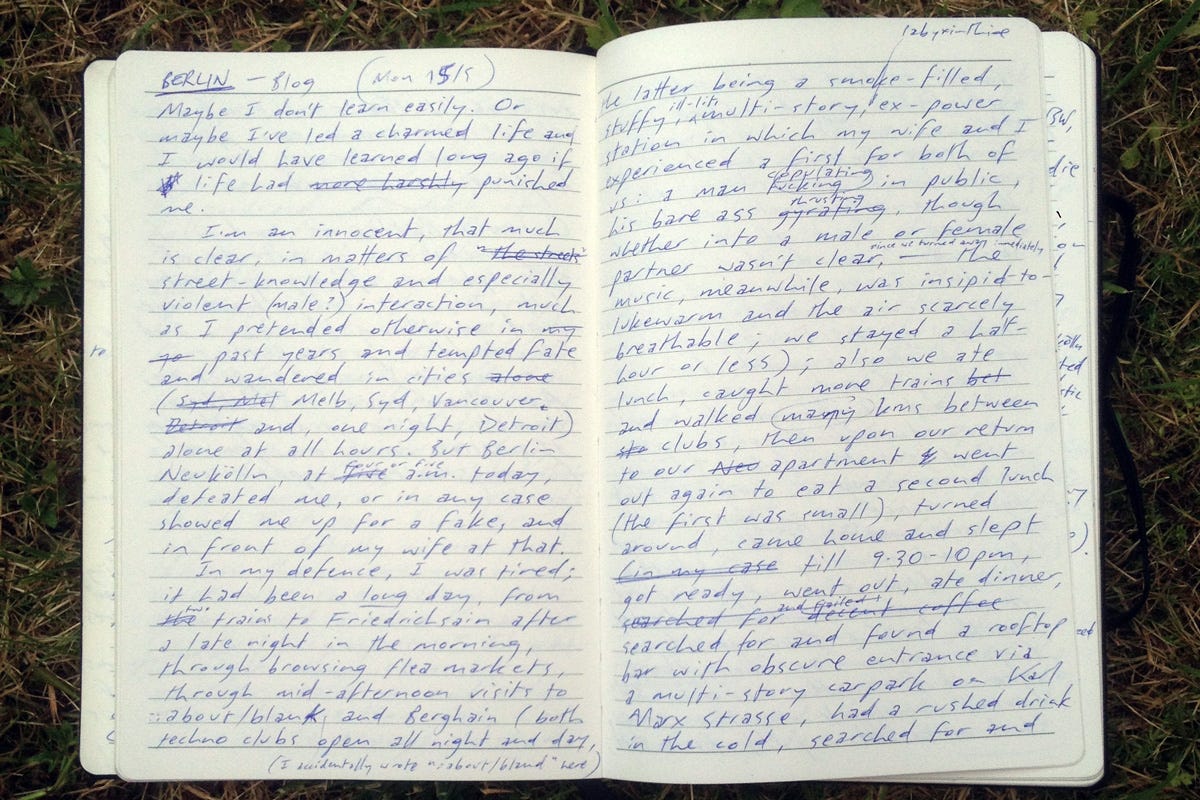 BERLIN - Blog (Mon 15/5)
Maybe I don't learn easily. Or
maybe I've led a charmed life and
I would have learned long ago if
life had more harshly punished
me.
I'm an innocent, that much
is clear, in matters of "the streets"
street-knowledge and especially
violent (male?) interaction, much
as I pretended otherwise in my
past years and tempted fate
and wandered in cities alone
(Syd, Mel Melb, Syd, Vancouver,
Detroit and, one night, Detroit)
alone at all hours. But Berlin
Neukölln, at five four or five a.m. today,
defeated me, or in any case
showed me up for a fake, and
in front of my wife at that.
In my defence, I was tired;
it had been a long day, from
the two trains to Friedrichsain after
a late night in the morning,
through browsing flea markets,
through mid-afternoon visits to
://about/blank and Berghain (both
techno clubs open all night and day,
(I accidentally wrote "://about/bland" here)
labyrinthine
the latter being a smoke-filled,
stuffy, ill-lit, multi-story, ex-power
station in which my wife and I
experienced a first for both of
us: a man fucking copulating in public,
his bare ass gyrating thrusting, though
whether into a male or female
partner wasn't clear, since we turned away immediately, — the
music, meanwhile, was insipid-to-
lukewarm and the air scarcely
breathable; we stayed a half-
hour or less); also we ate
lunch, caught more trains bet
and walked (many) kms between
clubs, then upon our return
to our Neo apartment went
out again to eat a second lunch
(the first was small), turned
around, came home and slept
(in my case till 9.30-10pm,
got ready, went out, ate dinner,
searched for and failed decent coffee
searched for and found a rooftop
bar with obscure entrance via
a multi-story carpark on Karl
Marx Strasse, had a rushed drink
in the cold, searched for and